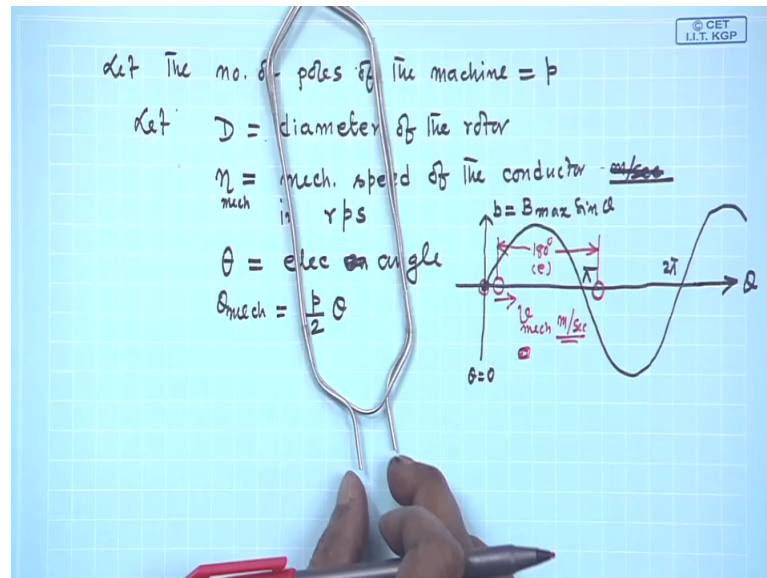 © CET
I.I.T. KGP
Let The no. of poles of the machine = p
Let D = diameter of the rotor
n mech = mech. speed of the conductor m/sec
in rps
θ = elec angle
θmech = p/2 θ
b = Bmax Sin θ
180°
(e)
π
2π
θ
v mech m/sec
θ=0